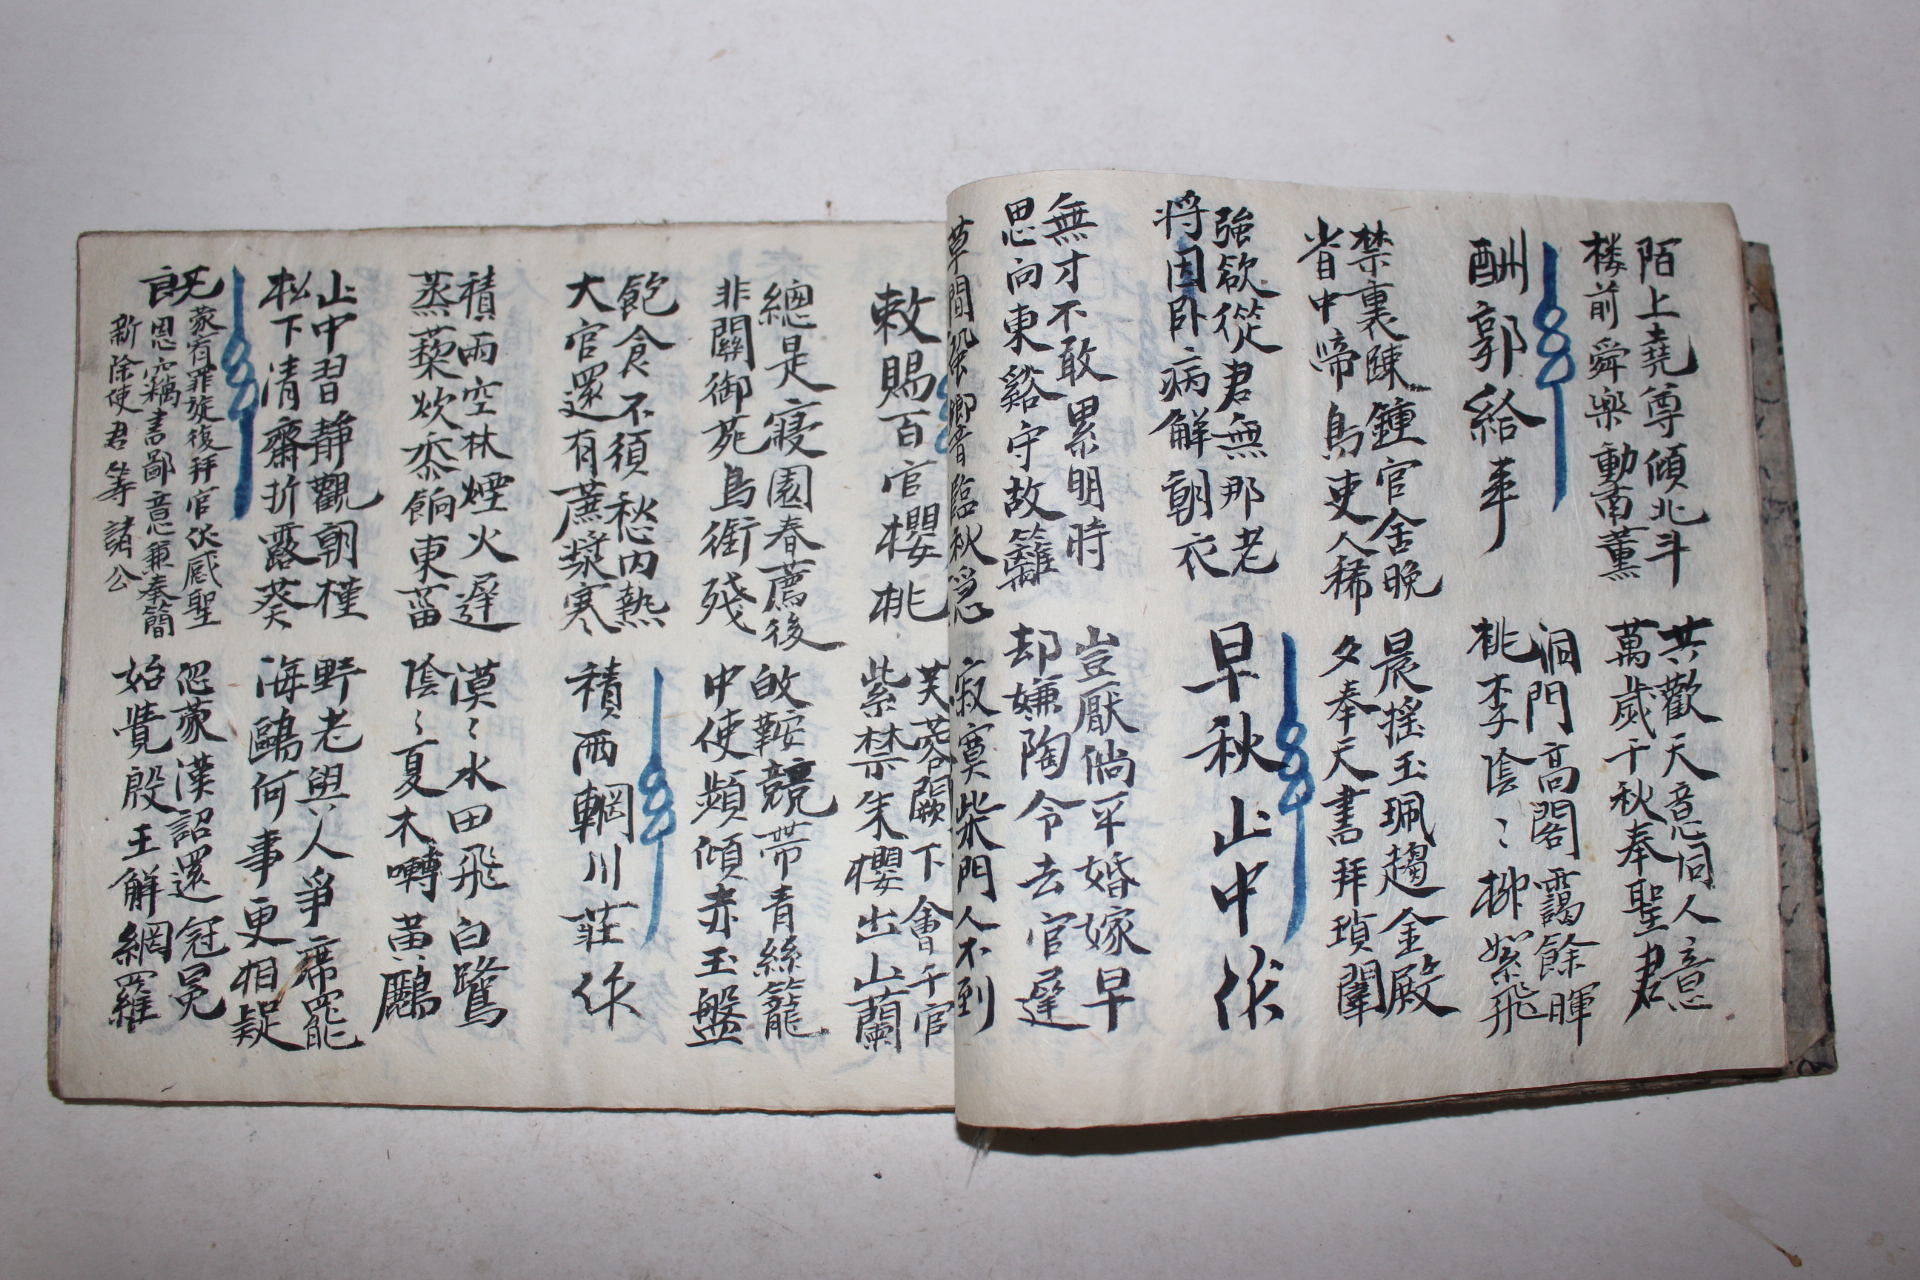 陌上堯尊傾北斗
楼前舜樂動南薰
共歡天意同人意
萬歲千秋奉聖君
酬郭給事
洞門高閣靄餘暉
桃李陰ミ柳絮飛
禁裏踈鍾官舍晚
省中啼鳥吏人稀
晨搖玉珮趨金殿
夕奉天書拜瑣闈
強欲從君無那老
將因臥病解朝衣
早秋山中作
無才不敢累明時
思向東谿守故籬
豈厭倘平婚嫁早
却嫌陶令去官遲
草間蛩響臨秋急
寂寞柴門人不到
敕賜百官櫻桃
芙蓉闕下會千官
紫禁朱櫻出山蘭
總是寢園春薦後
非關御苑鳥銜殘
皈鞍競帶青絲籠
中使頻傾赤玉盤
飽食不須愁內熱
大官還有蔗漿寒
積雨輞川莊作
積雨空林煙火遲
蒸藜炊黍餉東菑
漠ミ水田飛白鷺
陰ミ夏木囀黃鸝
山中習靜觀朝槿
松下清齋折露葵
野老與人爭席罷
海鷗何事更相疑
既蒙宥罪旋復拜官伏感聖
恩竊書鄙意兼奉簡
新除使君等諸公
忽蒙漢詔還冠冕
始覺殷王解網羅